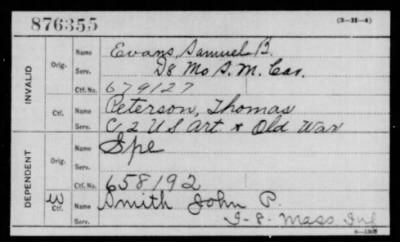 876355
(3-H-4)
INVALID
Orig.
Name Evans, Samuel B.
Serv. D 8 Mo S. M. Cav.
Ctf. No. 679127
Ctf.
Name Peterson, Thomas
Serv. C, 2 US Art & Old War
DEPENDENT
Orig.
Name Spe
Serv.
Ctf. No. 658192
W Ctf.
Name Smith John P.
I-8. Mass Inf